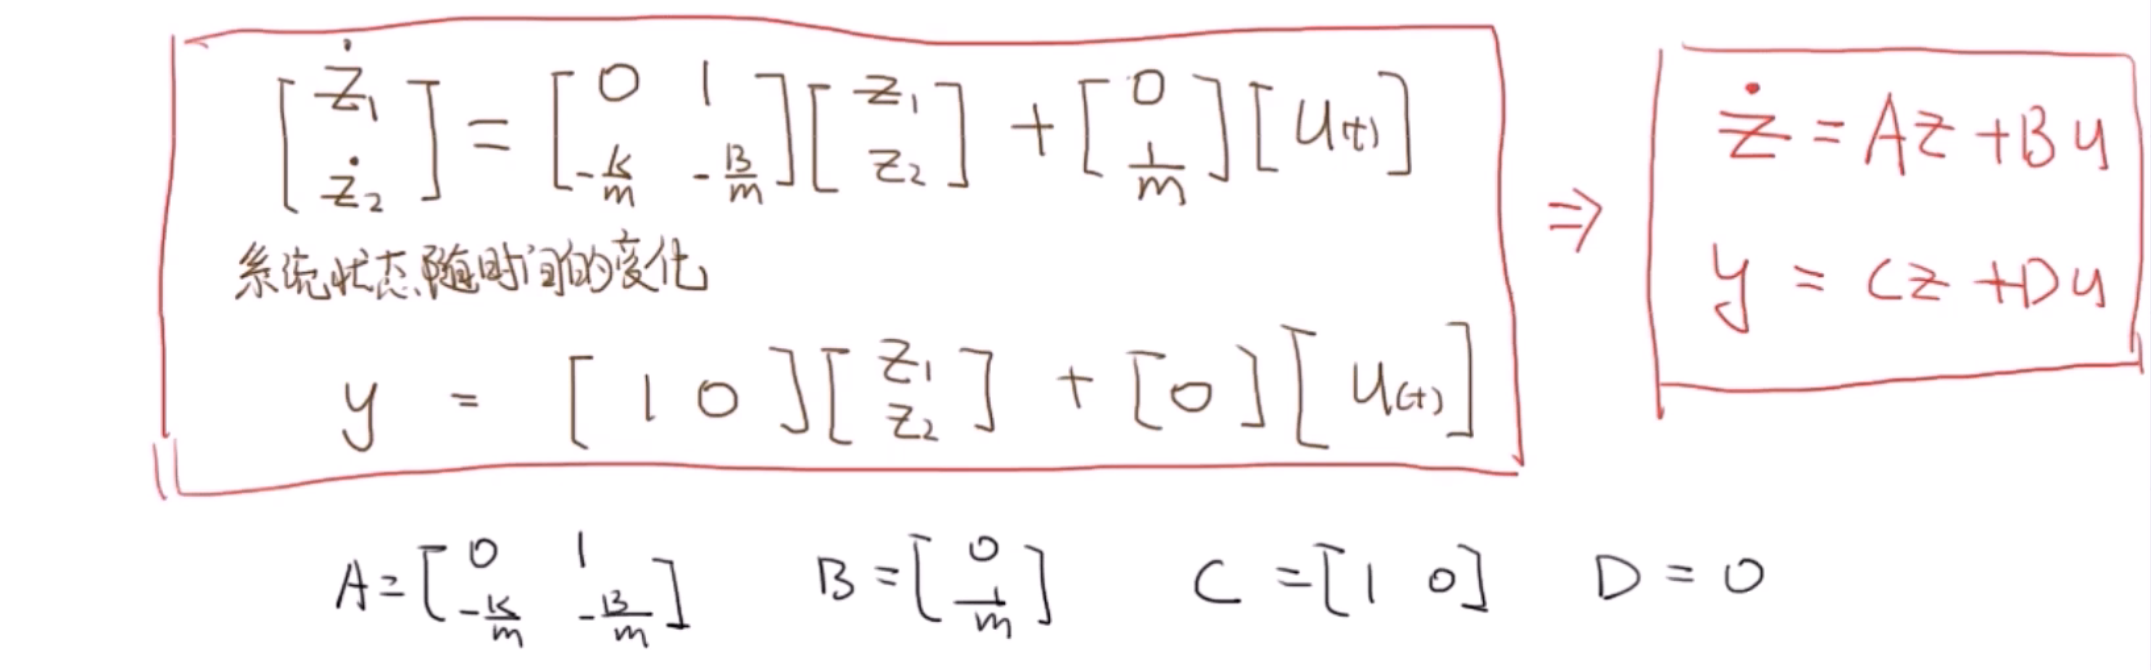 [ż₁ ż₂] = [0 1 -k/m -B/m] [z₁ z₂] + [0 1/m] [u(t)] ⇒ ż = Az + Bu
系统状态随时间的变化
y = [1 0] [z₁ z₂] + [0] [u(t)] y = Cz + Du
A = [0 1 -k/m -B/m] B = [0 1/m] C = [1 0] D = 0